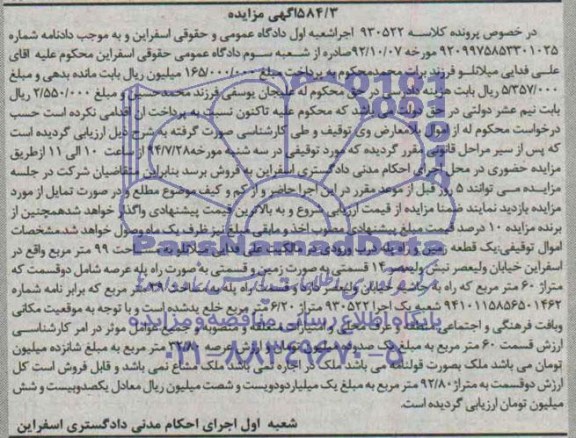 ۵۸۴/۳آگهی مزایده
در خصوص پرونده کلاسه ۹۳۰۵۲۲ اجراشعبه اول دادگاه عمومی و حقوقی اسفراین و به موجب دادنامه شماره
۹۲۰۹۹۷۵۸۵۳۳۰۱۰۲۵ مورخه ۹۲/۱۰/۰۷صادره از شعبه سوم دادگاه عمومی حقوقی اسفراین محکوم علیه آقای
علی فدایی میلانلو فرزند برات محمدمحکوم به پرداخت مبلغ ۱۶۵/۰۰۰/۰۰۰ میلیون ریال بابت مانده بدهی و مبلغ
۵/۳۵۷/۰۰۰ ریال بابت هزینه دادرسی در حق محکوم له علیجان یوسفی فرزند محمدحسین و مبلغ ۲/۵۵۰/۰۰۰ ریال
بابت نیم عشر دولتی در حق دولت می باشد که محکوم علیه تاکنون نسبت به پرداخت آن اقدامی نکرده است حسب
درخواست محکوم له از اموال بلامعارض وی توقیف و طی کارشناسی صورت گرفته به شرح ذیل ارزیابی گردیده است
که پس از سیر مراحل قانونی مقرر گردیده که مورد توقیفی در سه شنبه مورخه۹۴/۷/۲۸از ساعت ۱۰ الی ۱۱ ازطریق
مزایده حضوری در محل اجرای احکام مدنی دادگستری اسفراین به فروش برسد بنابراین متقاضیان شرکت در جلسه
مزایده می توانند ۵ روز قبل از موعد مقرر در این اجرا حاضر و از کم و کیف موضوع مطلع و در صورت تمایل از مورد
مزایده بازدید نمایند ضمنا مزایده از قیمت ارزیابی شروع و به بالاترین قیمت پیشنهادی واگذار خواهد شدهمچنین از
برنده مزایده ۱۰ درصد قیمت مبلغ پیشنهادی مصوب اخذ و مابقی مبلغ نیز ظرف یک ماه وصول خواهد شد مشخصات
اموال توقیفی:یک قطعه زمین و راه پله درب ورودی در مالکیت علی فدایی میلانلو به مساحت ۹۹ متر مربع واقع در
اسفراین خیابان ولیعصر نبش ولیعصر۱۴ قسمتی به صورت زمین و قسمتی به صورت راه پله عرصه شامل دوقسمت که
متراژ ۶۰ متر مربع که راه به حاشیه خیابان ولیعصر دارد وقسمت راه پله به مساحت متر مربع که برابر نامه شماره
۹۴۱۰۱۱۵۸۵۶۵۰۱۴۶۲ شعبه یک اجرا ۹۳۰۵۲۲ متراژ ۶/۲۰ متر مربع خلع یدشده است و با توجه به موقعیت مکانی
وبافت فرهنگی و اجتماعی منطقه و عرف محلی و امتیازات منطقه منصوبه و جمیع عوامل موثر در امر کارشناسی
ارزش قسمت ۶۰ متر مربع به مبلغ یک صدوده میلیون تومان ارزش عرصه متر مربع به مبلغ شانزده میلیون
تومان می باشد ملک بصورت قولنامه می باشد ملک در اجاره نمی باشد ملک مشاع نمی باشد و قابل فروش است کل
ارزش دوقسمت به متراژ ۹۲/۸۰ متر مربع به مبلغ یک میلیاردودویست و شصت میلیون ریال معادل یکصدوبیست و شش
میلیون تومان ارزیابی گردیده است.
شعبه اول اجرای احکام مدنی دادگستری اسفراین
ParsNamadData
پایگاه اطلاع رسانی مناقصه و مزایده
۰۲۱-۸۸۳۴۹۶۷۰-۵